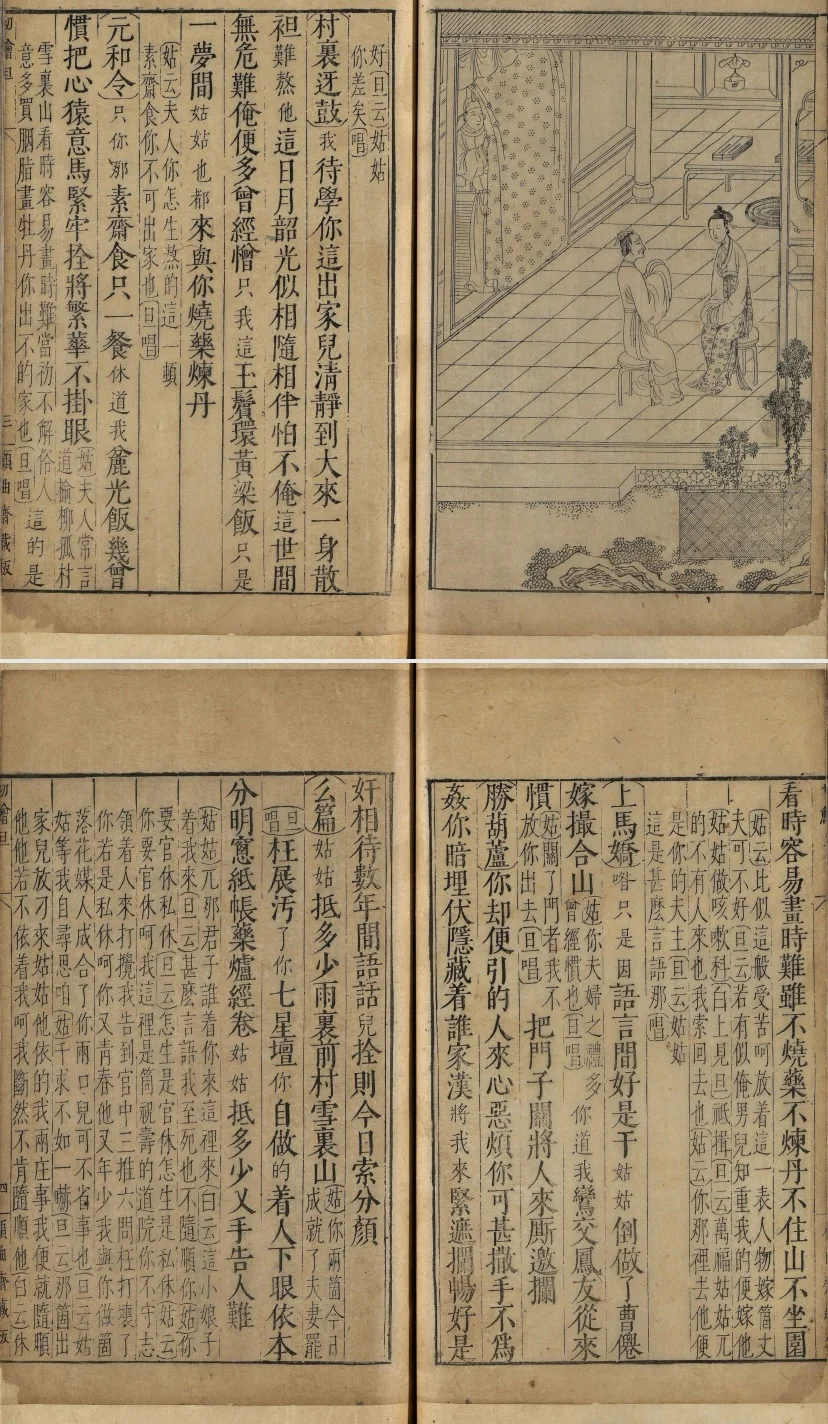 好旦云姑姑
你差矣唱
村裏迓鼓我待學你這出家兒清靜到大來一身散
袒難熬他這日月韶光似相隨相伴怕不俺這世間
無危難俺便多曾經憎只我這玉鬢環黃梁飯只是
一夢間姑姑也都來與你燒藥煉丹
姑云夫人你怎生熬的這一頓
素齋食你不可出家也旦唱
元和令只你那素齋食只一餐休道我麄光飯幾曾
慣把心猿意馬緊牢拴將繁華不掛眼姑夫人常言道榆柳孤村
雪裏山看時容易畫時難當初不解俗人
意多買胭脂畫牡丹你出不的家也旦唱這的是
切鱠旦 三 顧曲齋藏板
看時容易畫時難雖不燒藥不煉丹不住山不坐圜
姑云比似這般受苦呵放着這一表人物嫁箇丈
夫可不好旦云若有似俺男兒知重我的便嫁他
姑姑做咳嗽科白上見旦祗揖旦云萬福姑姑兀
的不有人來也我索回去也姑云你那裡去他便
是你的夫主旦云姑姑
這是甚麽言語那唱
上馬嬌喒只是因語言間好是干姑姑倒做了曹僊
嫁撮合山姑你夫婦之禮多曾經慣也旦唱你道我鸞交鳳友從來
慣姑關了門者我不放你出去旦唱把門子關將人來厮邀攔
勝葫蘆你却便引的人來心惡煩你可甚撒手不爲
姦你暗埋伏隱藏着誰家漢將我來緊遮攔暢好是
奸相待數年間語話兒拴則今日索分顏
么篇姑姑抵多少雨裏前村雪裏山姑你兩箇今日成就了夫妻罷
旦唱枉展汚了你七星壇你自做的着人下眼依本
分明窻紙帳藥爐經卷姑姑抵多少叉手告人難
姑姑兀那君子誰着你來這裡來白云這小娘子
着我來旦云甚麽言語我至死也不隨順你姑你
要官休私休旦云怎生是官休怎生是私休姑云
你要官休呵我這裡是箇祝壽的道院你不守志
領着人來打攪我告到官中三推六問枉打壞了
你若是私休呵你又青春他又年少我與你做箇
落花媒人成合了你兩口兒可不省事也旦云姑
姑等我自尋思咱姑千求不如一嚇旦云那箇出
家兒放刁來姑姑他依的我兩庄事我便就隨順
他他若不依着我呵我斷然不肯隨順他白云休
切鱠旦 四 顧曲齋藏板